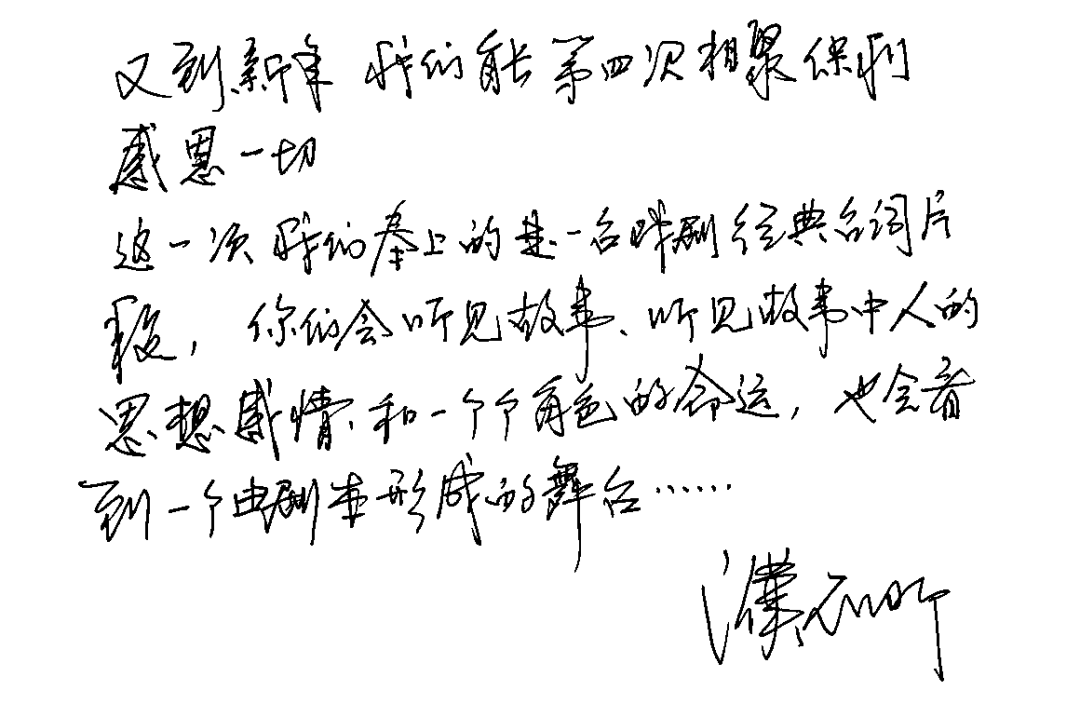 又到新年 我们能第四次相聚保利
感恩一切
这一次我们奉上的是一台戏剧经典台词片
段，你们会听见故事、听见故事中人的
思想感情、和一个个角色的命运，也会看
到一个由剧本形成的舞台……
濮存昕